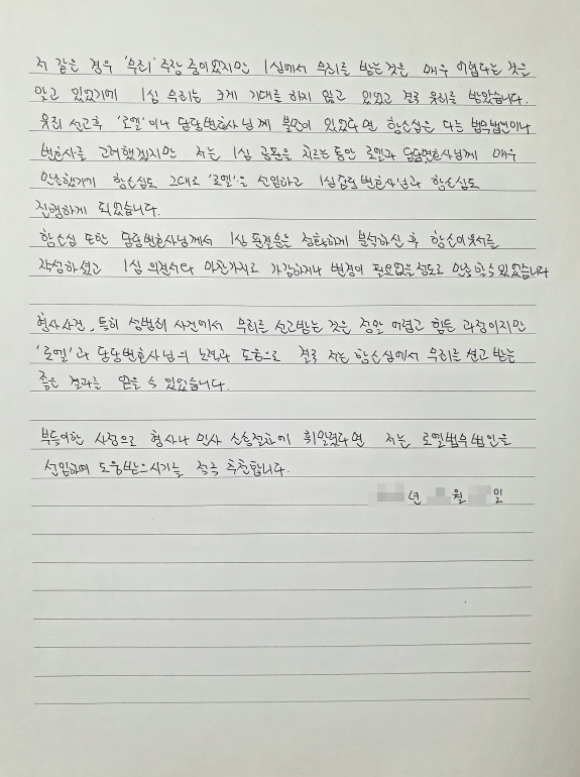 저 같은 경우 '무죄' 주장 중이었지만 1심에서 무죄를 받는것은 매우 어렵다는 것은
알고 있었기에 1심 무죄는 크게 기대를 하지 않고 있었고 결국 유죄를 받았습니다.
유죄 선고후 '로엘'이나 담당변호사님께 불만이 있었다면 항소심은 다른 법무법인이나
변호사를 고려했겠지만 저는 1심 공판을 치르는 동안 로엘과 담당변호사님께 매우
만족했기에 항소심도 그대로 '로엘'을 선임하고 1심담당변호사님과 항소심도
진행하게 되었습니다.
항소심 또한 담당변호사님께서 1심 판결문을 정확하게 분석하신 후 항소이유서를
작성하셨고 1심 의견서와 마찬가지로 가감하거나 변경이 필요없을 정도로 만족할 수 있었습니다
형사사건, 특히 성범죄 사건에서 무죄를 선고받는 것은 정말 어렵고 힘든 과정이지만
'로엘'과 담당변호사님의 노력과 도움으로 결국 저는 항소심에서 무죄를 선고 받는
좋은 결과를 얻을 수 있었습니다.
부득이한 사정으로 형사나 민사 소송절차에 휘말렸다면 저는 로엘법무법인을
선임하여 도움받으시기를 적극 추천합니다.
년 월 일